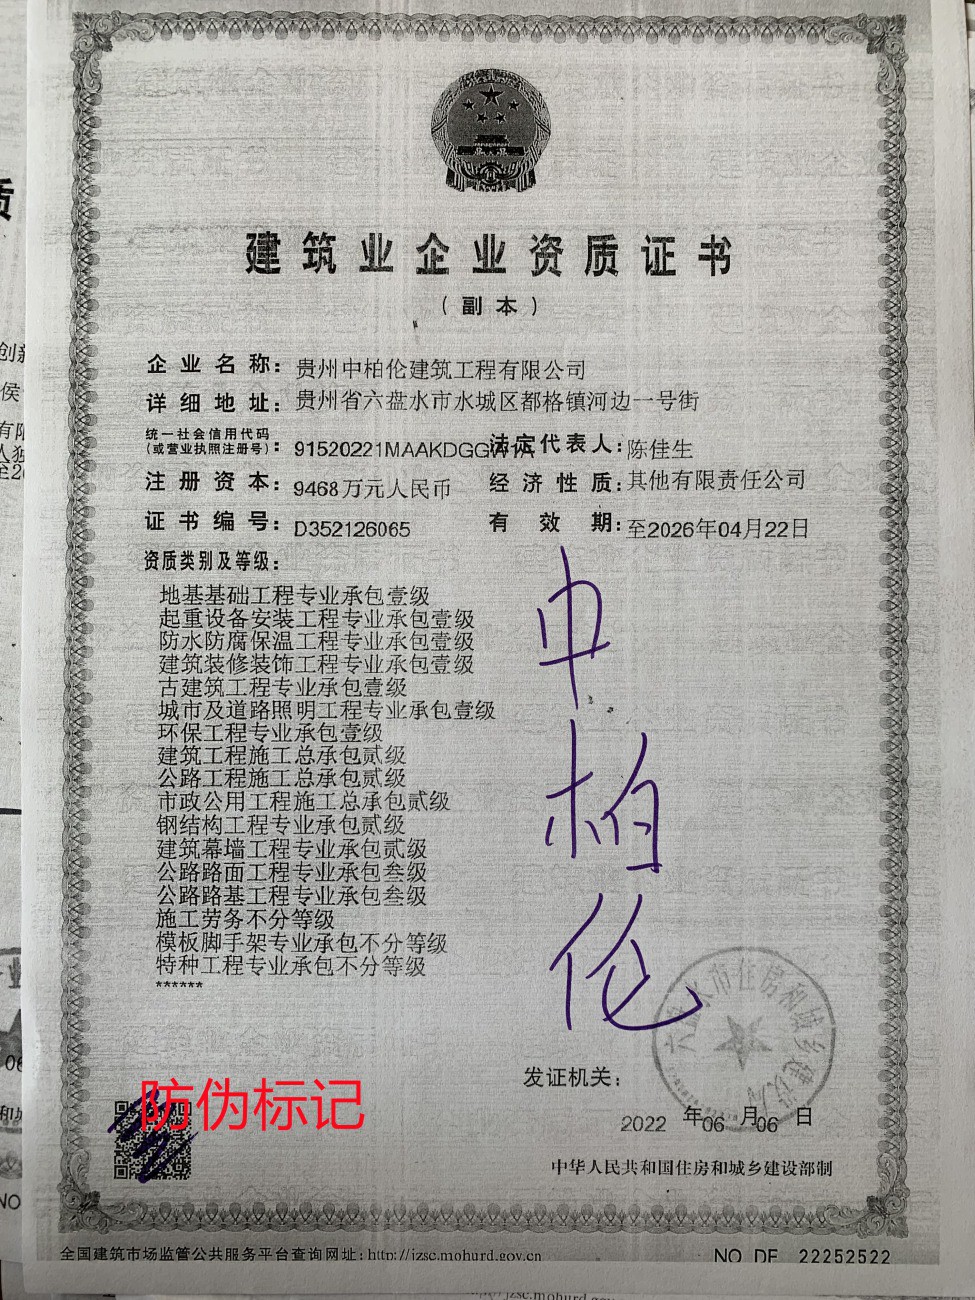 建筑业企业资质证书
（副本）
企业名称：贵州中柏伦建筑工程有限公司
详细地址：贵州省六盘水市水城区都格镇河边一号街
统一社会信用代码
（或营业执照注册号）：91520221MAAKDGGW1A 法定代表人：陈佳生
注册资本：9468万元人民币 经济性质：其他有限责任公司
证书编号：D352126065 有效期：至2026年04月22日
资质类别及等级：
地基基础工程专业承包壹级
起重设备安装工程专业承包壹级
防水防腐保温工程专业承包壹级
建筑装修装饰工程专业承包壹级
古建筑工程专业承包壹级
城市及道路照明工程专业承包壹级
环保工程专业承包壹级
建筑工程施工总承包贰级
公路工程施工总承包贰级
市政公用工程施工总承包贰级
钢结构工程专业承包贰级
建筑幕墙工程专业承包贰级
公路路面工程专业承包叁级
公路路基工程专业承包叁级
施工劳务不分等级
模板脚手架专业承包不分等级
特种工程专业承包不分等级
******
中柏伦
六盘水市住房和城乡建设局
发证机关：
防伪标记
2022年06月06日
中华人民共和国住房和城乡建设部制
全国建筑市场监管公共服务平台查询网址：http://jzsc.mohurd.gov.cn
NO DF 22252522